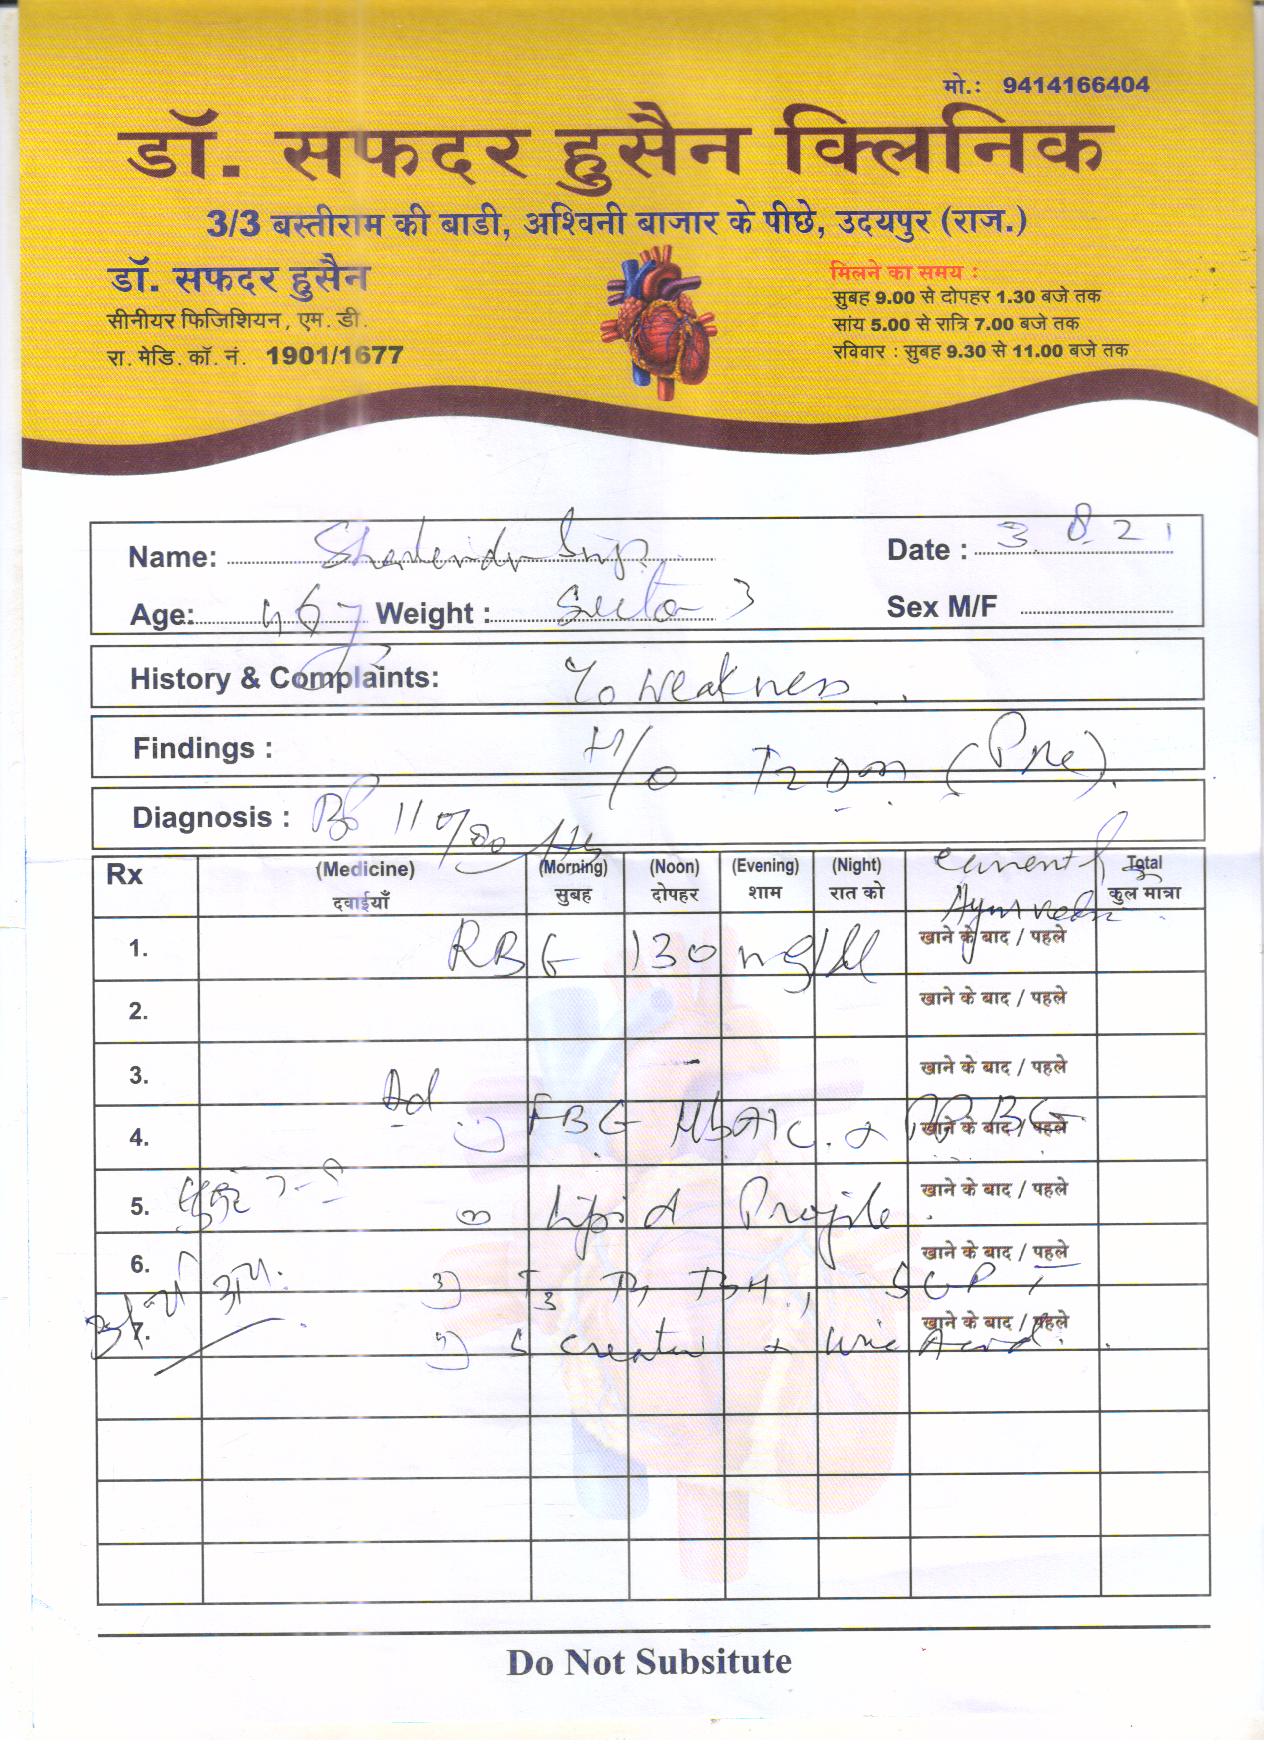 मो.: 9414166404
डॉ. सफदर हुसैन क्लिनिक
3/3 बस्तीराम की बाडी, अश्विनी बाजार के पीछे, उदयपुर (राज.)
डॉ. सफदर हुसैन
सीनीयर फिजिशियन, एम. डी.
रा. मेडि. कॉ. नं. 1901/1677
मिलने का समय :
सुबह 9.00 से दोपहर 1.30 बजे तक
सांय 5.00 से रात्रि 7.00 बजे तक
रविवार : सुबह 9.30 से 11.00 बजे तक
Name: Date : 3.8.21
Age: Weight : Sector 3 Sex M/F
History & Complaints: c/o weakness.
Findings : H/o T2DM (Pre).
Diagnosis : BP 110/80
Rx (Medicine) (Morning) (Noon) (Evening) (Night) Total
दवाईयाँ सुबह दोपहर शाम रात को कुल मात्रा
1. RBG 130 mg/dl खाने के बाद / पहले
2. खाने के बाद / पहले
3. खाने के बाद / पहले
Ad
4. 1) FBG HbA1c. & PPBG खाने के बाद / पहले
5. 2) Lipid Profile. खाने के बाद / पहले
6. खाने के बाद / पहले
3) T3 T4 TSH,
7. खाने के बाद / पहले
4) S creatin & Uric Acid.
Do Not Subsitute